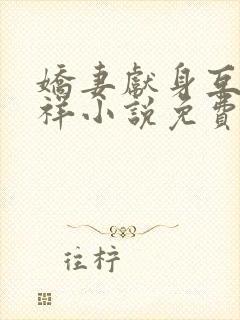 嬌妻獻身互
祥小說免費
往柠